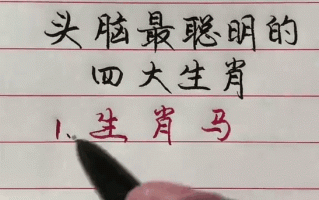 头脑最聪明的
四大生肖
1、生肖马